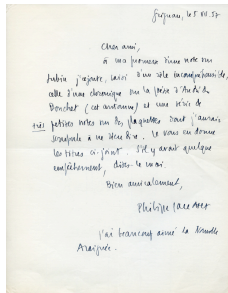 Grignan, le 5 VII. 57
Cher ami,
à ma promesse d'une note sur
Dubin j'ajoute, saisi d'un zèle incompréhensible,
celle d'une chronique sur la poésie d'André du
Bouchet (cet automne) et une série de
très petites notes sur des plaquettes dont j'aurais
scrupule à ne rien dire. Je vous en donne
les titres ci-joint. S'il y avait quelque
empêchement, dites-le moi.
Bien amicalement,
Philippe Jaccottet
J'ai beaucoup aimé la Nouvelle
Araignée.